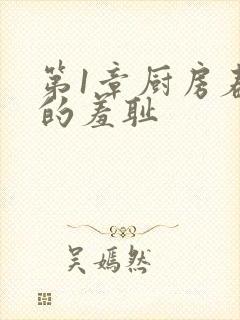 第1章厨房
的羞耻
吴嫣然